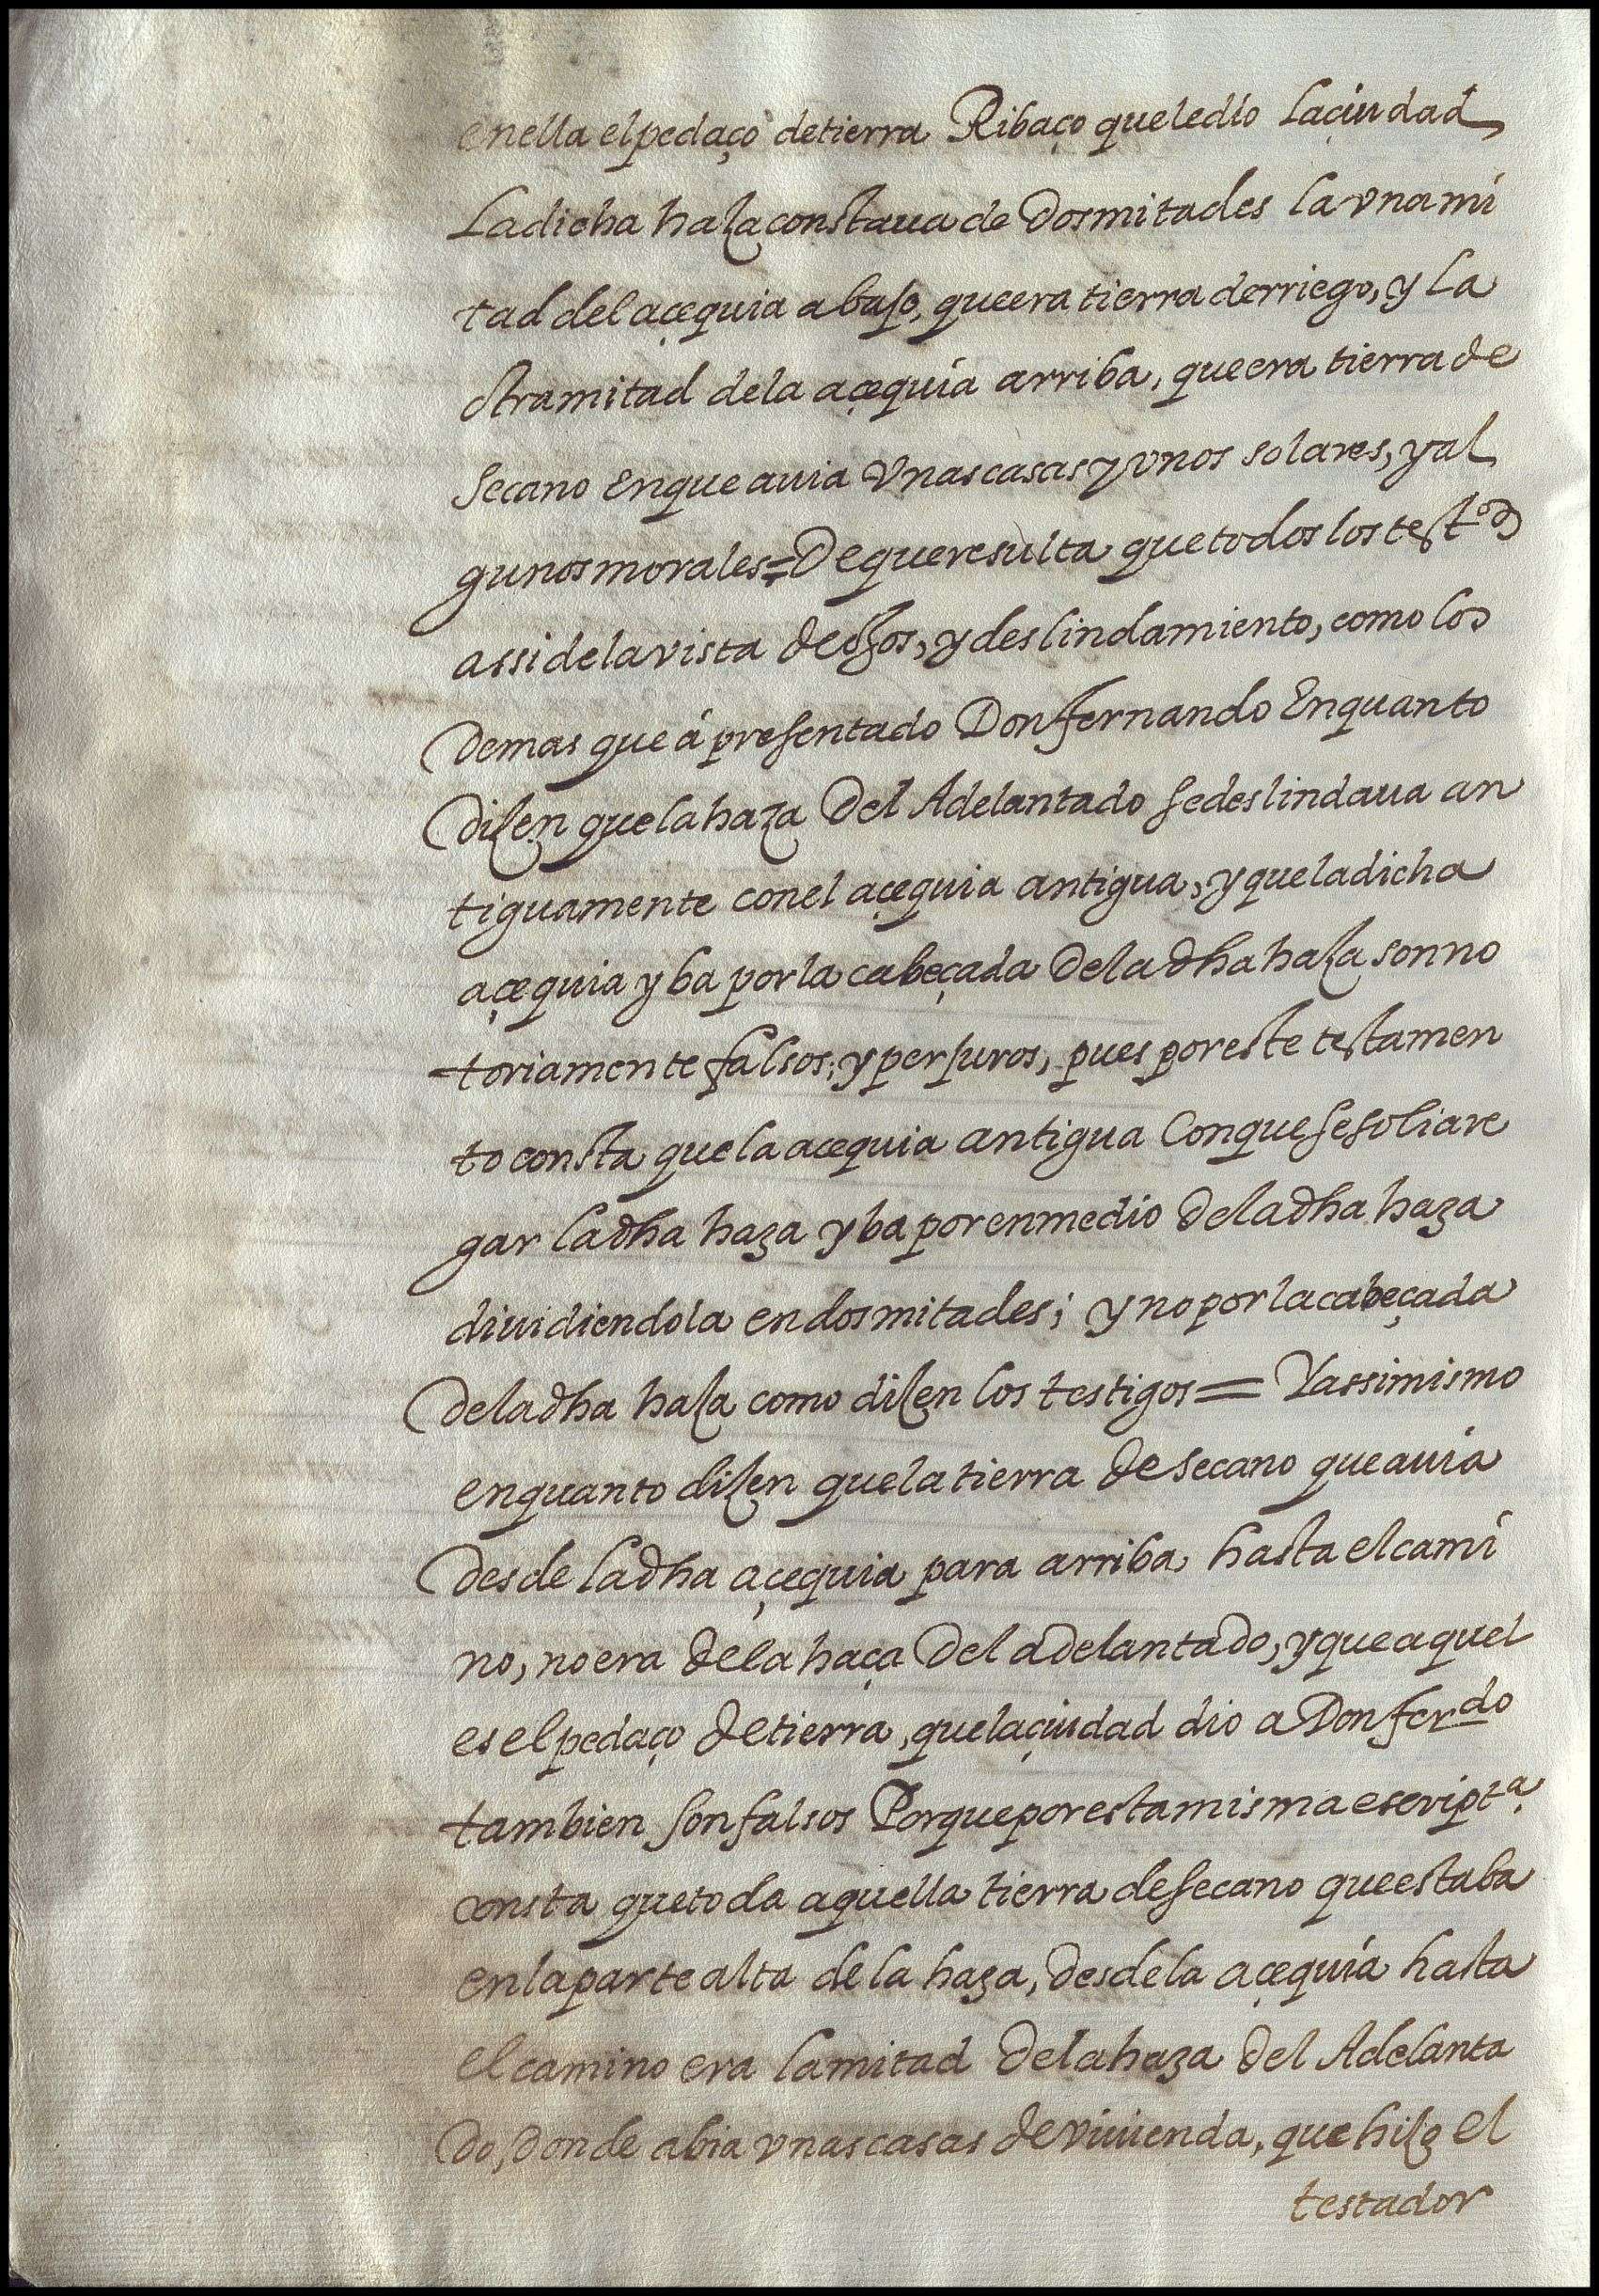 enella el pedaço de tierra Ribaço que le dio la çiudad
La dicha haza constaua de Dos mitades la vna mi
tad del açequia abajo, que era tierra de rriego, y la
otra mitad de la açequia arriba, que era tierra de
secano en que auia vnas casas y vnos solares, y al
gunos morales = De que resulta que todos los testos
assi de la vista de ojos, y deslindamiento, como los
demas que á presentado Don fernando Enquanto
dizen que la haza del Adelantado se deslindaua an
tiguamente con el açequia antigua, y que la dicha
açequia yba por la cabeçada de la dha haza son no
toriamente falsos, y perjuros, pues por este testamen
to consta que la acequia antigua Con que se solia re
gar la dha haza yba por en medio de la dha haza
diuidiendola en dos mitades; y no por la cabeçada
de la dha haza como dizen los testigos = Y assimismo
enquanto dizen que la tierra de secano que auia
desde la dha açequia para arriba hasta el cami
no, no era de la haça del adelantado, y que aquel
es el pedaço de tierra, que la çiudad dio a Don ferdo
tambien son falsos Porque por esta misma escripta
consta que toda aquella tierra de secano que estaba
en la parte alta de la haza, desde la açequia hasta
el camino era la mitad de la haza del Adelanta
do, donde abia vnas casas de viuienda, que hizo el
testador